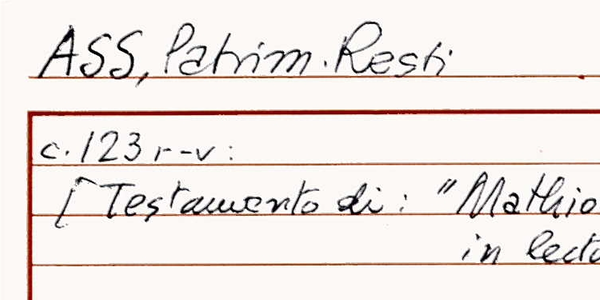 ASS, Patrim. Resti
c. 123 r-v:
[Testamento di: "Mathio
in lecto